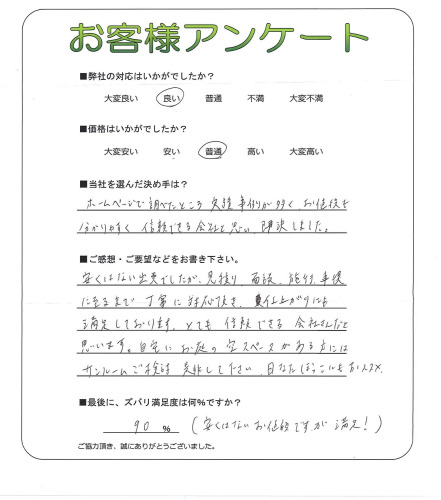 お客様アンケート
■弊社の対応はいかがでしたか？
大変良い 良い 普通 不満 大変不満
■価格はいかがでしたか？
大変安い 安い 普通 高い 大変高い
■当社を選んだ決め手は？
ホームページで調べたところ 実績 事例が多く、お値段も
分かりやすく 信頼できる会社と思い、即決しました。
■ご感想・ご要望などをお書き下さい。
安くはない出費でしたが、見積り、面談、施行、事後
に至るまで 丁寧に対応頂き、仕上がりにも
満足しております。とても 信頼できる 会社さんだと
思います。自宅に お庭の 空スペースがある方には
サンルームご検討 是非して下さい、日なたぼっこにもおススメ。
■最後に、ズバリ満足度は何％ですか？
90 ％ (安くはない お値段ですが 満足！)
ご協力頂き、誠にありがとうございました。